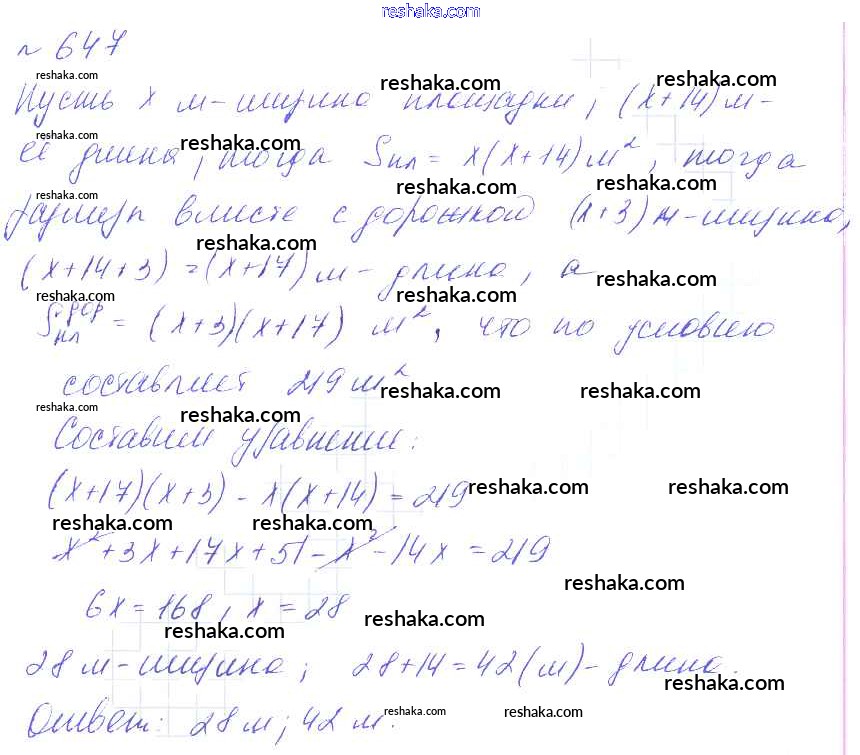 www.reshaka.com
№ 647
reshaka.com reshaka.com reshaka.com
Пусть x м - ширина площадки, (x+14) м -
reshaka.com reshaka.com
её длина, тогда Sпл = x(x+14) м², тогда
reshaka.com reshaka.com reshaka.com
вместе с дорожкой (x+3) м - ширина,
reshaka.com
(x+14+3) = (x+17) м - длина, а
reshaka.com reshaka.com
Sпл дор = (x+3)(x+17) м², что по условию
составляет 219 м²
reshaka.com reshaka.com
reshaka.com reshaka.com
Составим уравнение:
(x+17)(x+3) - x(x+14) = 219
reshaka.com reshaka.com
reshaka.com reshaka.com
x² + 3x + 17x + 51 - x² - 14x = 219
reshaka.com
6x = 168, x = 28
reshaka.com reshaka.com
28 м - ширина; 28+14 = 42 (м) - длина.
reshaka.com
Ответ: 28 м; 42 м.
reshaka.com reshaka.com